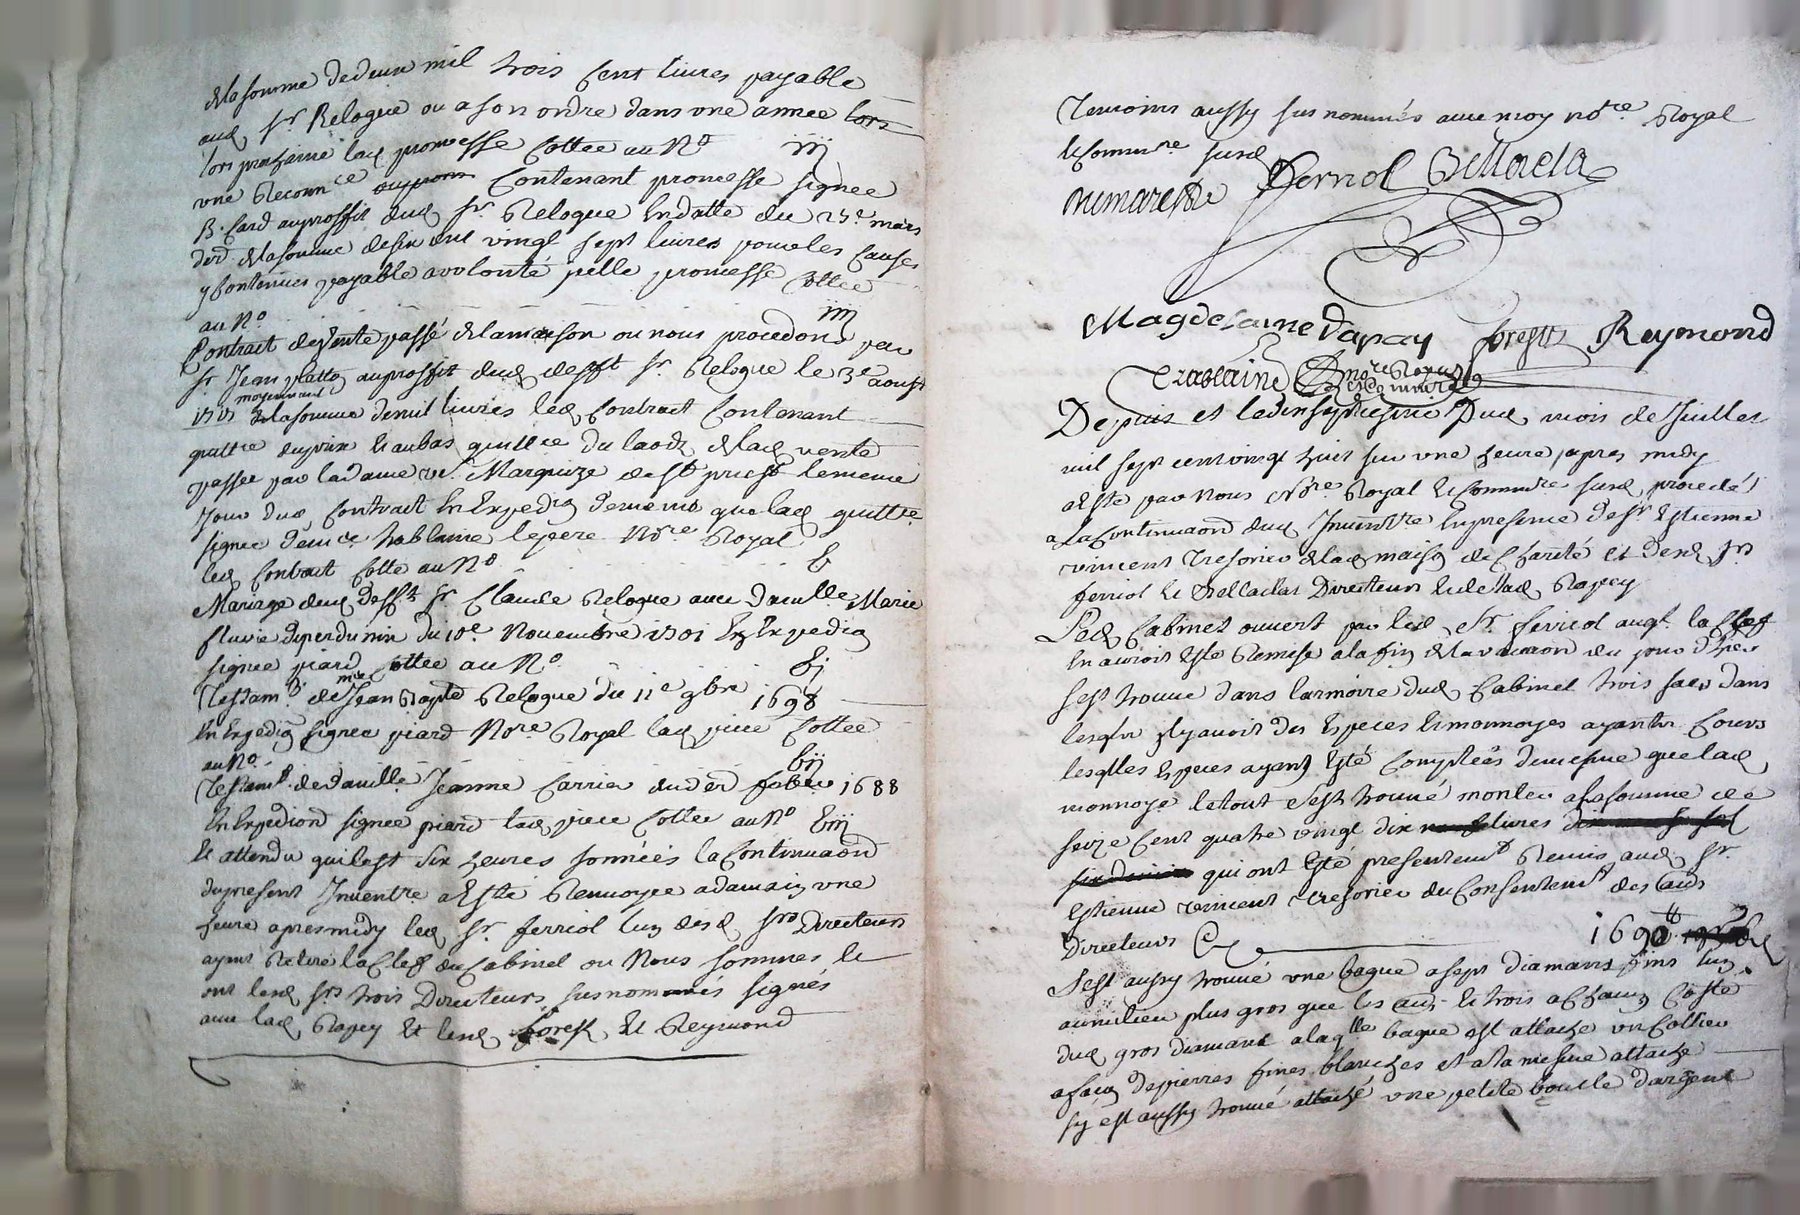 de la somme de deux mil trois cent livres payable
aud Sr Relogue ou a son ordre dans une annee lors
lors prochaine lad promesse cottee au No iij
une Reconnce contenant promesse signee
B. Card au proffit dud Sr Relogue en datte du 25e mars
derr de la somme de six cent vingt sept livres pour les causes
y contenues payable a volonté jcelle promesse cottee
au No iiij
Contract de vente passé de la maison ou nous procedons par
Sr Jean au proffit dud defft Sr Relogue le 3e aoust
moyennant
la somme de mil livres led Contract Contenant
quittce du prix et au bas quittce du laodz de lad vente
passee par la dame ve. Marquize de St priest le mesme
Jour dud Contract en Expedion de mesme que lad quittce
signee de me trablaine le pere Nore Royal
led Contract cotte au No v
Mariage dud defft Sr Claude Relogue avec damlle Marie
fluvie du perdu 10e Novembre 1701 en Expedion
signee piard cottee au No vj
Testamt de me Jean Bapte Relogue du 11e 9bre 1698
en Expedion signee piard Nore Royal lad piece cottee
au No vij
Testamt de damlle Jeanne Carrier du der febvr 1688
en Expedion signee piard lad piece cottee au No viij
Et attendu qu'il est six heures sonnées la Continuaon
du present Inventre a Esté Renvoyee a demain une
heure apres midy led Sr ferriol lun desd Srs Directeurs
ayant Retiré la Clef du Cabinet ou Nous sommes et
ont lesd Srs trois Directeurs susnommés signés
avec lad Rapey Et lesd forest et Reymond
Temoins aussy sus nommés avec moy nore Royal
et Commre susd
Numareste Ferriol Bellacla
Magdelaine Dapay forest Reymond
Trablaine nore Royal
et Commre
Depuis et le dud mois de Juillet
mil sept cent vingt huit sur une heure apres midy
a Este par Nous Nore Royal et Commre susd procedé
a La Continuaon dud Inventre En presence de Sr Estienne
vincent Tresorier de lad maison de Charité et desd Srs
ferriol et Bellaclat Directeurs et de lad Rapey
Led Cabinet ouvert par led Sr ferriol auql la Clef
en avoit Esté Remise a la fin de la vacaon du jour d'hier
sest trouvé dans larmoire dud Cabinet trois sacs dans
lesqls il y avoit des Especes et monnoyes ayant Cours
lesqlles Especes ayant Esté Comptées de mesme que lad
monnoye le tout sest trouvé monter a la somme de
seize cent quatre vingt dix livres
qui ont Esté presentemt Remis aud Sr
Estienne vincent Tresorier du Consentemt des aud
Directeurs Cy 1690
Sest aussy trouvé une bague a sept diamants fins lun
au milieu plus gros que les auts et trois a Chacun Costé
dud gros diamant a laqlle bague est attaché un Collier
a facon de pierres fines blanches et a la mesme attache
sy est aussy trouvé attaché une petite boucle d'argent